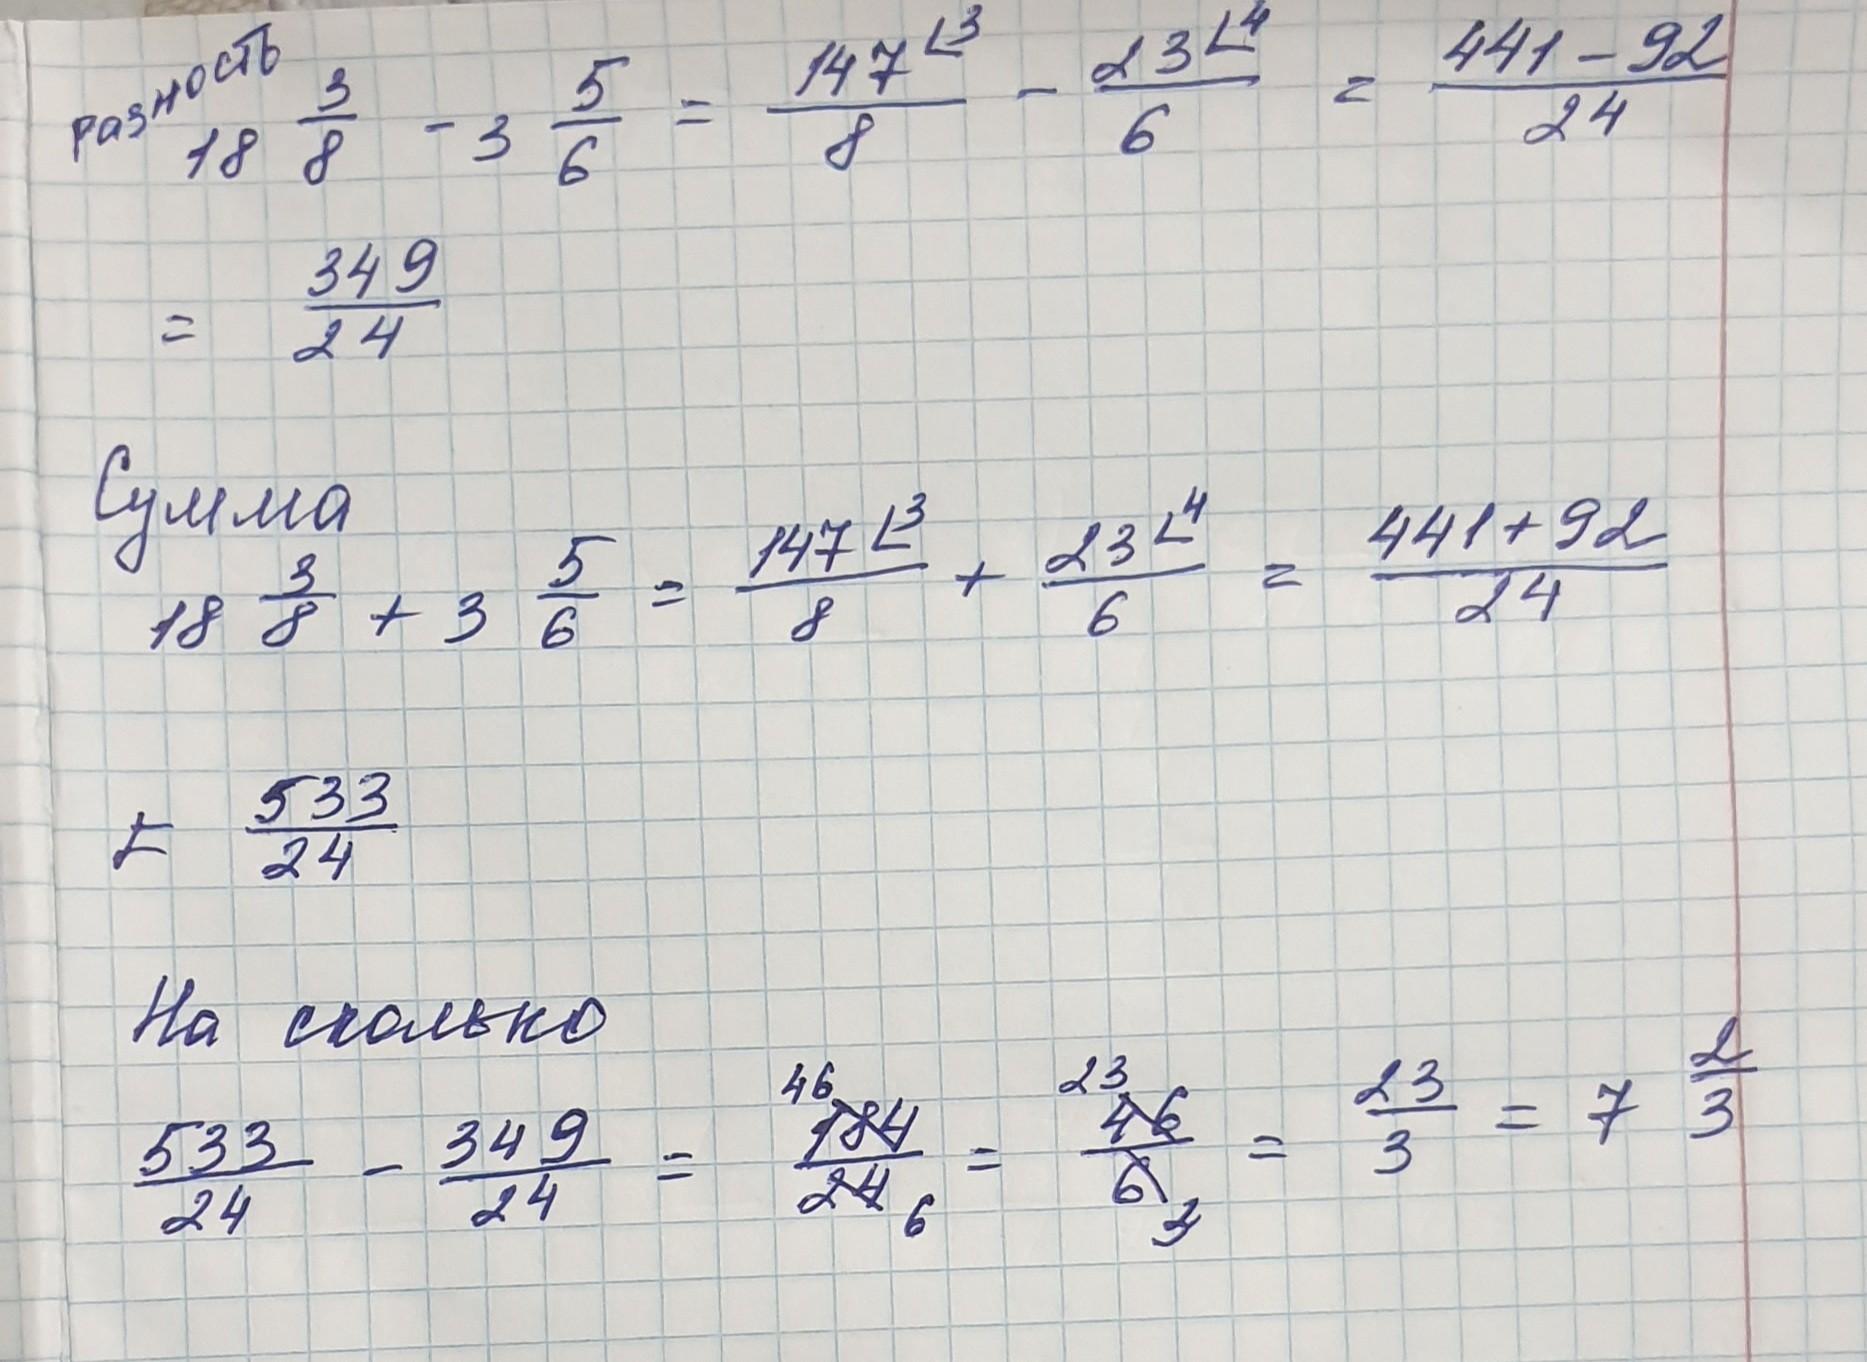 разность
18 3/8 - 3 5/6 = 147∟3/8 - 23∟4/6 = 441-92/24
= 349/24
Сумма
18 3/8 + 3 5/6 = 147∟3/8 + 23∟4/6 = 441+92/24
= 533/24
На сколько
533/24 - 349/24 = 46 184/24 6 = 23 46/6 3 = 23/3 = 7 2/3